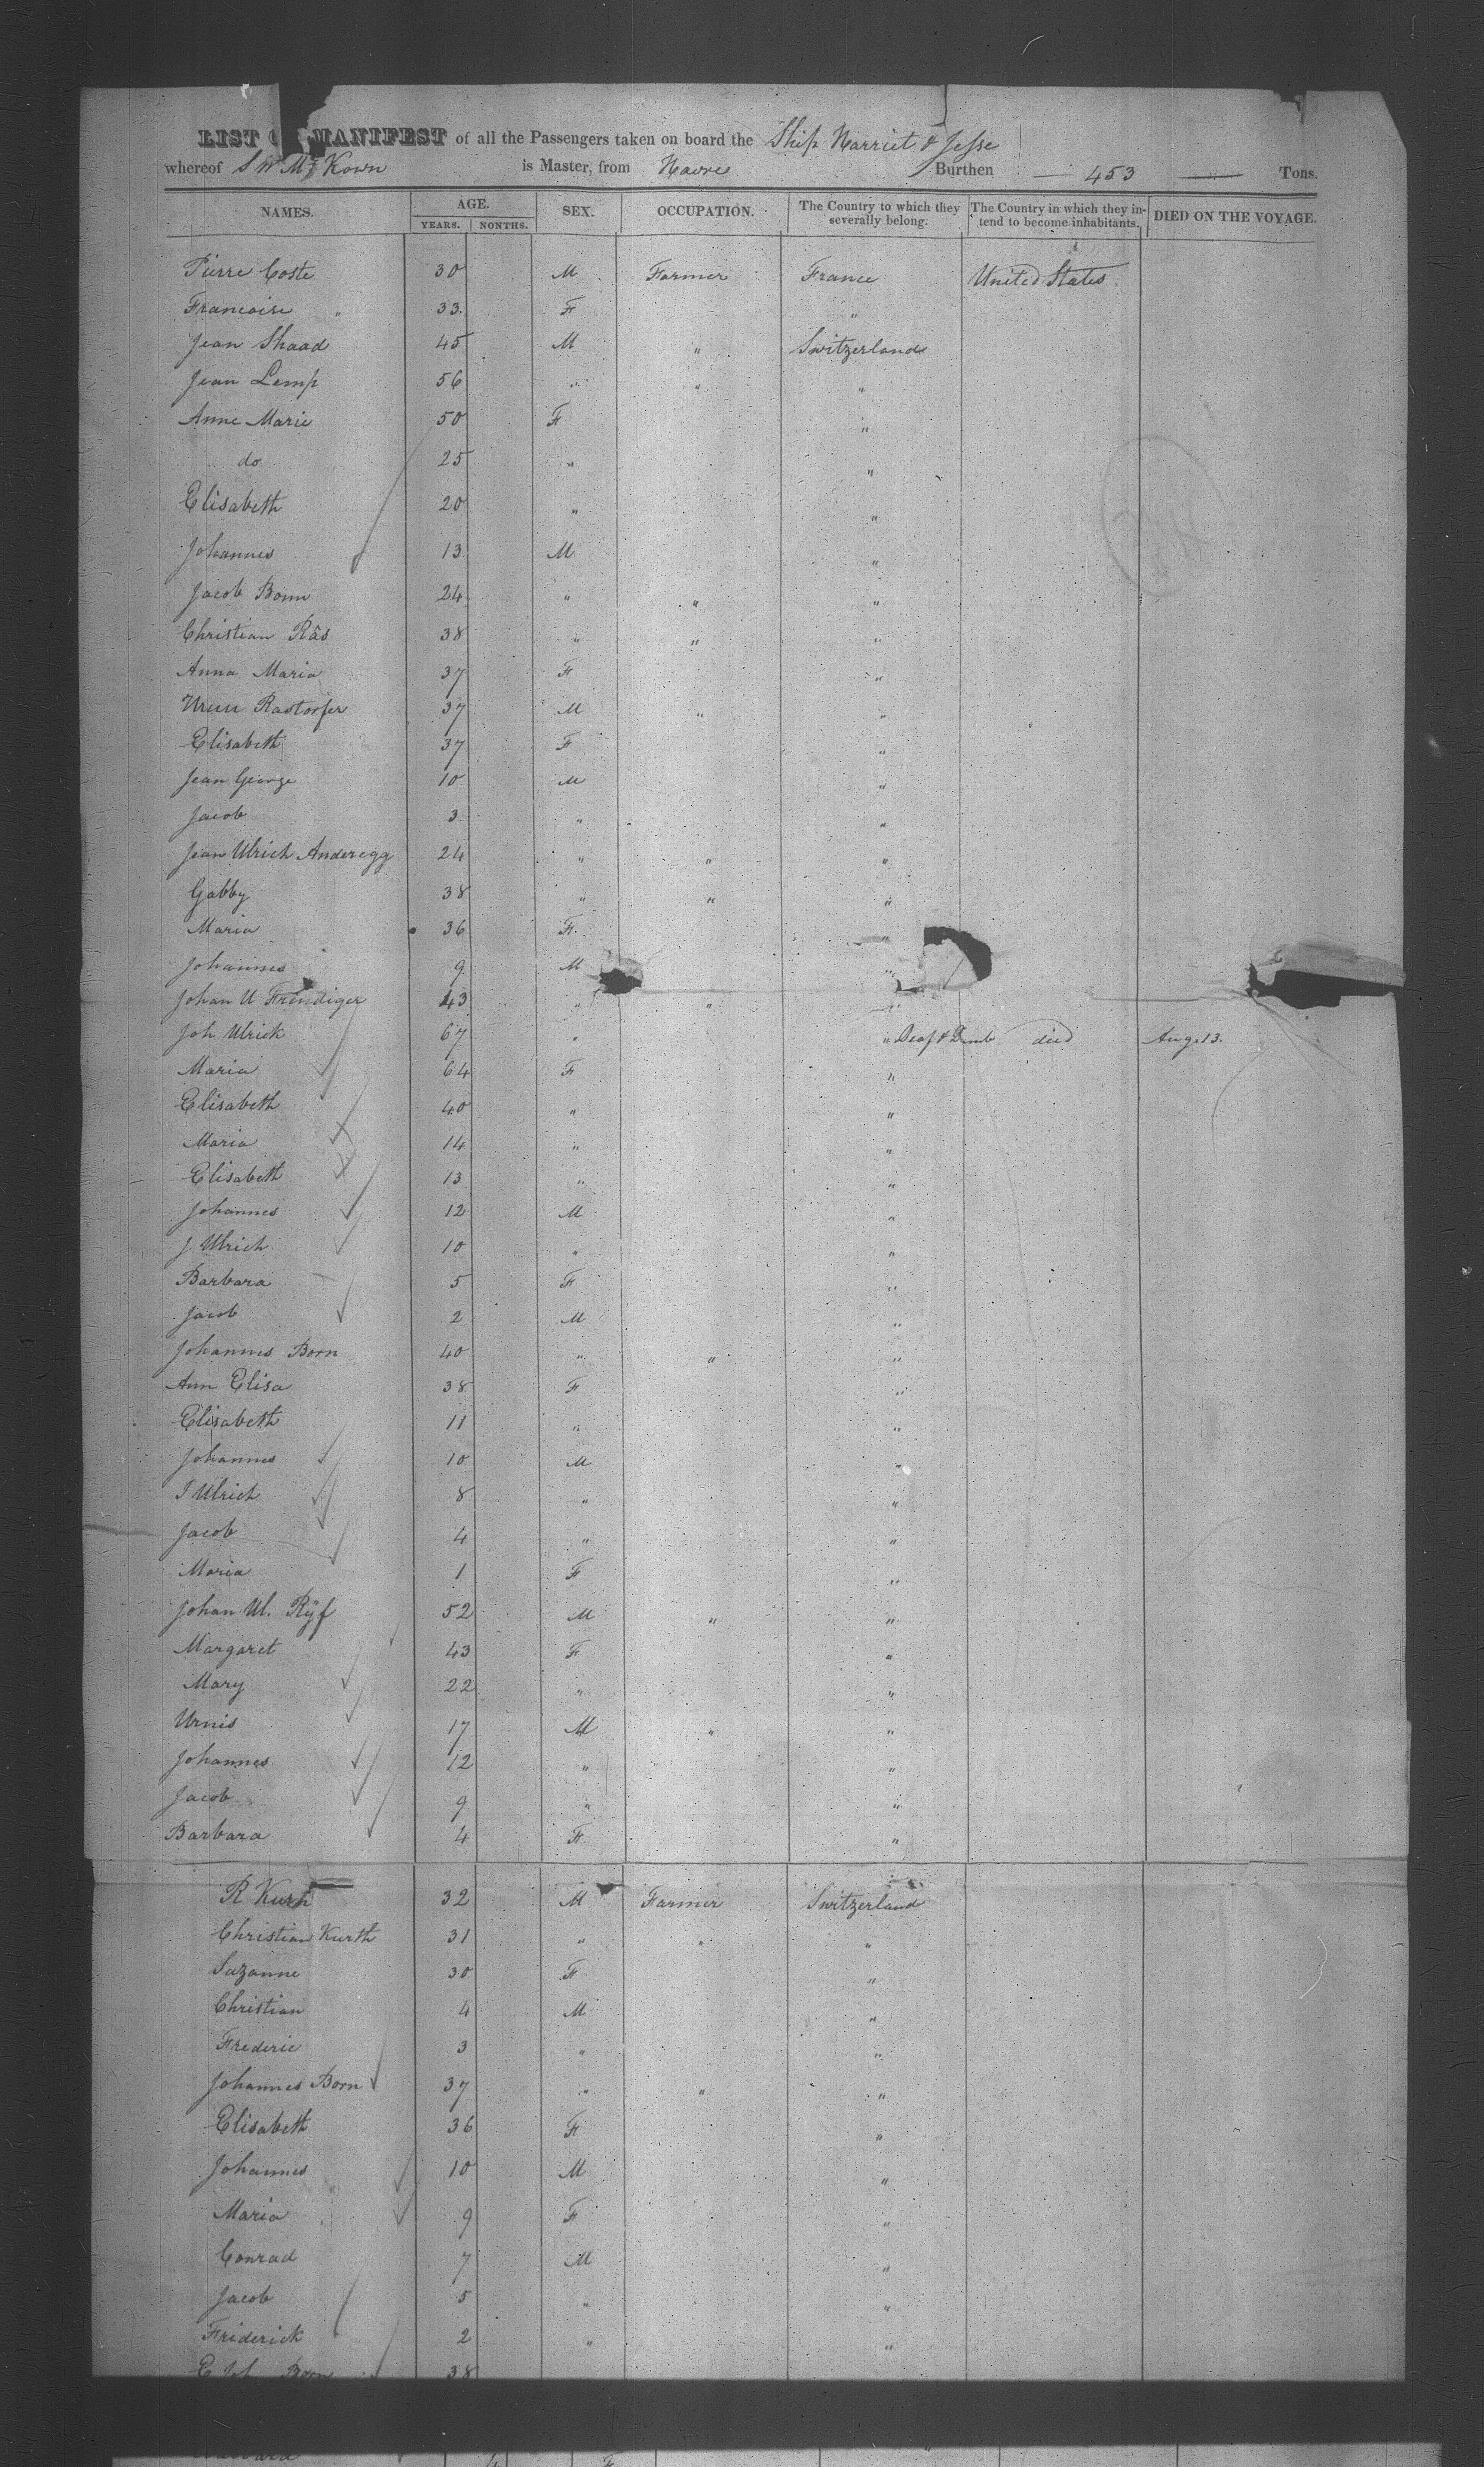 LIST MANIFEST of all the Passengers taken on board the Ship Harriet & Jesse
whereof S W McKown is Master, from Havre Burthen — 453 — Tons.
NAMES. AGE. SEX. OCCUPATION. The Country to which they severally belong. The Country in which they intend to become inhabitants. DIED ON THE VOYAGE.
YEARS. MONTHS.
Pierre Coste 30 M Farmer France United States
Francoise " 33 F "
Jean Shaad 45 M " Switzerland
Jean Lemp 56 " " "
Anne Marie 50 F "
do 25 " "
Elisabeth 20 " "
Johannes 13 M "
Jacob Bonn 24 " " "
Christian Räs 38 " " "
Anna Maria 37 F "
Rastorfer 37 M " "
Elisabeth 37 F "
Jean George 10 M "
Jacob 3 " "
Jean Ulrich Anderegg 24 " " "
Gabby 38 " " "
Maria 36 F "
Johannes 9 M "
Johan U Frendiger 43 " " "
Joh Ulrick 67 " " Deaf & Dumb died Aug. 13.
Maria 64 F "
Elisabeth 40 " "
Maria 14 " "
Elisabeth 13 " "
Johannes 12 M "
J Ulrich 10 " "
Barbara 5 F "
Jacob 2 M "
Johannes Born 40 " " "
Ann Elisa 38 F "
Elisabeth 11 " "
Johannes 10 M "
J Ulrich 8 " "
Jacob 4 " "
Maria 1 F "
Johan Ul. Ryf 52 M " "
Margaret 43 F "
Mary 22 " "
Urnis 17 M " "
Johannes 12 " "
Jacob 9 " "
Barbara 4 F "
R Kurth 32 M Farmer Switzerland
Christian Kurth 31 " " "
Suzanne 30 F "
Christian 4 M "
Frederic 3 " "
Johannes Born 37 " " "
Elisabeth 36 F "
Johannes 10 M "
Maria 9 F "
Conrad 7 M "
Jacob 5 " "
Friderick 2 " "
Born 38
4 F